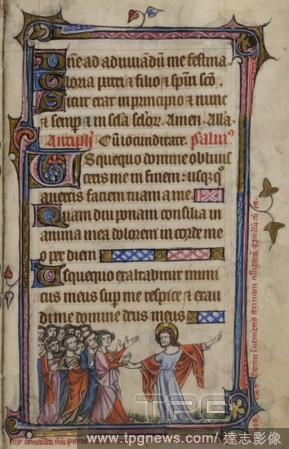 ne ad adiuvandū me festina
loria patri & filio & spūi scō
Sicut erat in principio & nunc
& semp & in scla sclor. Amen. Alla
Antiph Cū iocunditate. Psalm⁹
Usquequo domine oblivis
ceris me in finem: usqꝫq⁹
avertis faciem tuam a me
Quam diu ponam consilia in
anima mea dolorem in corde me
o per diem
Usquequo exaltabitur inimi
cus meus sup me respice & exau
di me domine deus meus
TPG
www.tpgnews.com / 達志影像